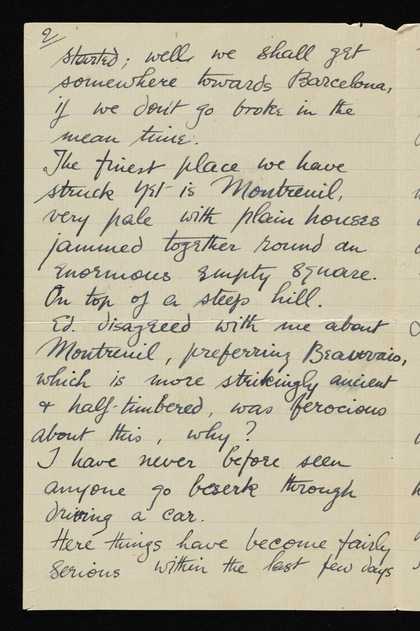 2
started; well, we shall get
somewhere towards Barcelona,
if we don't go broke in the
mean time.
The finest place we have
struck yet is Montreuil,
very pale with plain houses
jammed together round an
enormous empty square.
On top of a steep hill.
Ed. disagreed with me about
Montreuil, preferring Beauvais,
which is more strikingly ancient
& half-timbered, was ferocious
about this, why?
I have never before seen
anyone go beserk through
driving a car.
Here things have become fairly
serious within the last few days